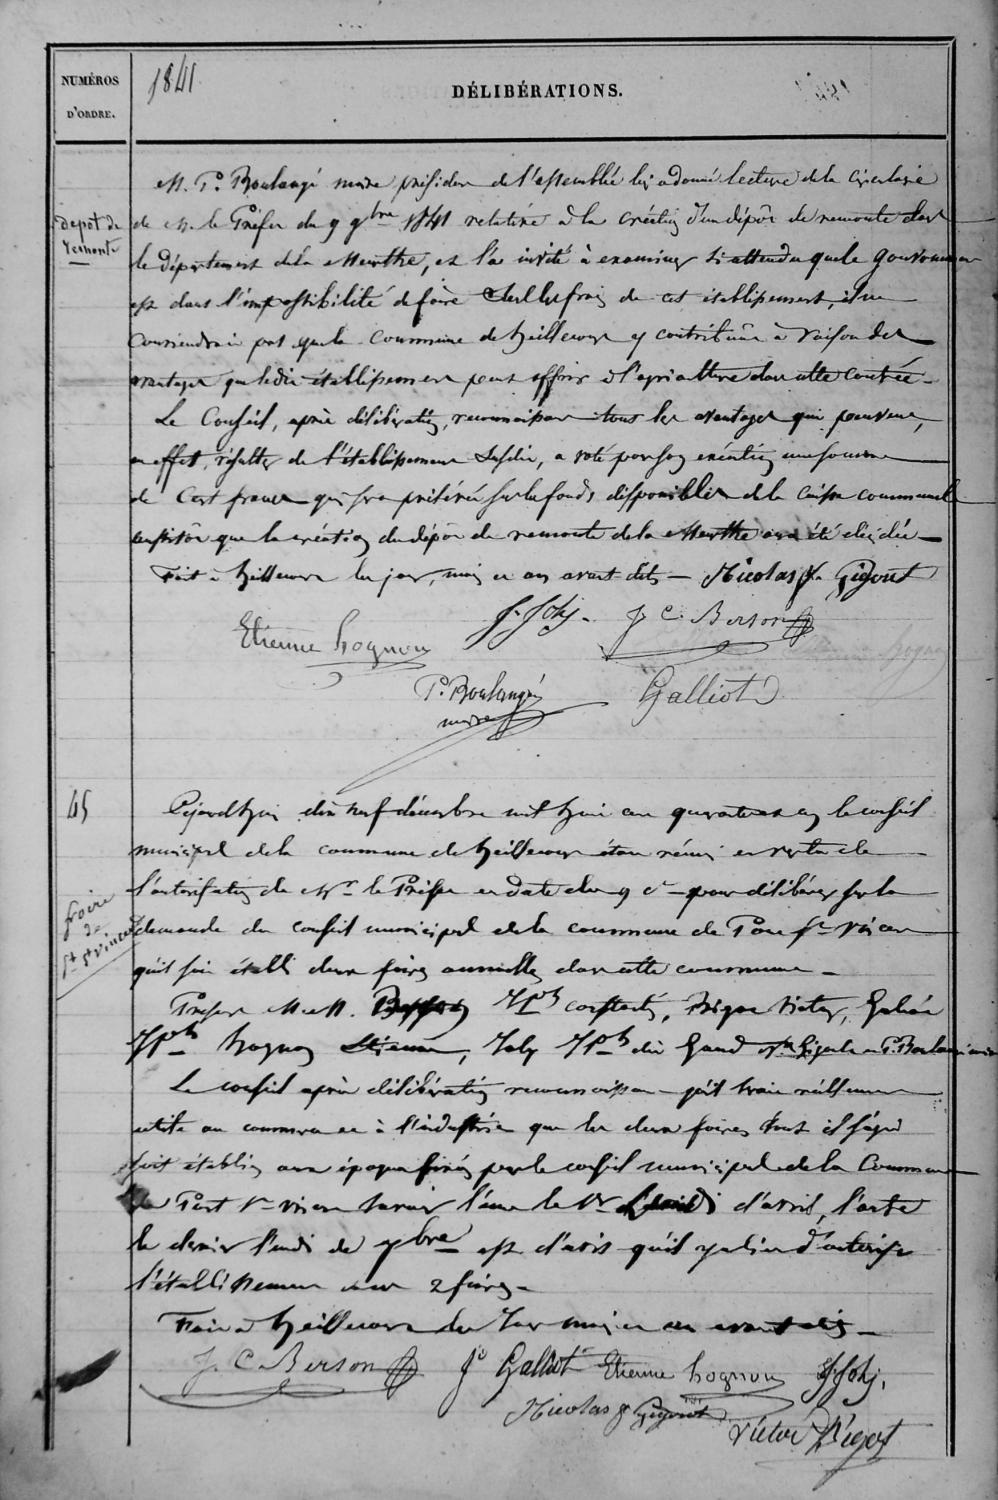 NUMÉROS
D'ORDRE.
1841
DÉLIBÉRATIONS.
Depot de
remonte
M. P. Boulangé maire président de l'assemblée lui a donné lecture de la circulaire
de Mr le Préfet du 9 9bre 1841 relative à la création d'un dépôt de remonte dans
le département de la Meurthe, et l'a invité à examiner si attendu que le gouvernement
est dans l'impossibilité de faire seul les frais de cet établissement, il ne
conviendrait pas que la commune de heillecourt y contribuât à raison des
avantages que le dit établissement peut offrir à l'agriculture dans cette contrée.
Le Conseil, après délibération, reconnaissant tous les avantages qui peuvent,
en effet, résulter de l'établissement susdit, a voté pour son exécution une somme
de Cent francs qui sera prélévé sur les fonds disponibles de la caisse communale
aussitôt que la création du dépôt de remonte de la Meurthe aura été décidée
Fait à heillecourt les jour, mois et an avant dits — Nicolas Gigout
J. Joly. J C. Berson
Etienne hognon
P. Boulangé Galliot
maire
45
foire
de
Pt St Vincent
Cejourd'hui dix neuf décembre mil huit cent quarante un le conseil
municipal de la commune de heillecourt étant réuni en vertu de
l'autorisation de Mr le Préfet en date du 9 ct pour délibérer sur la
demande du conseil municipal de la commune de Pont St Vincent
qu'il soit établi deux foires annuelles dans cette commune.
Présens MM. Jph Victor, Galliot
Jph hognon Etienne, Joly Jph dit Gand P. Boulangé maire
Le conseil après délibération reconnaissant qu'il serait réellement
utile au commerce et à l'industrie que les deux foires dont il s'agit
soit établies aux époques fixées par le conseil municipal de la Commune
de Pont St vincent savoir l'une le 1er Lundi d'avril, l'autre
le dernier lundi de 7bre est d'avis qu'il y a lieu d'autoriser
l'établissement 2 foires.
Fait à heillecourt les Jour mois et an avant dits.
J. C. Berson J. Galliot Etienne hognon J Joly.
Nicolas Gigout
Victor Bigot